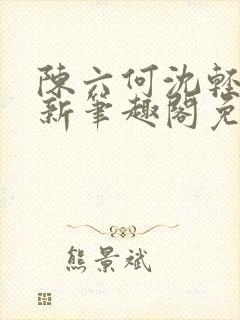 陳六何沈輕
新筆趣閣免
熊景斌